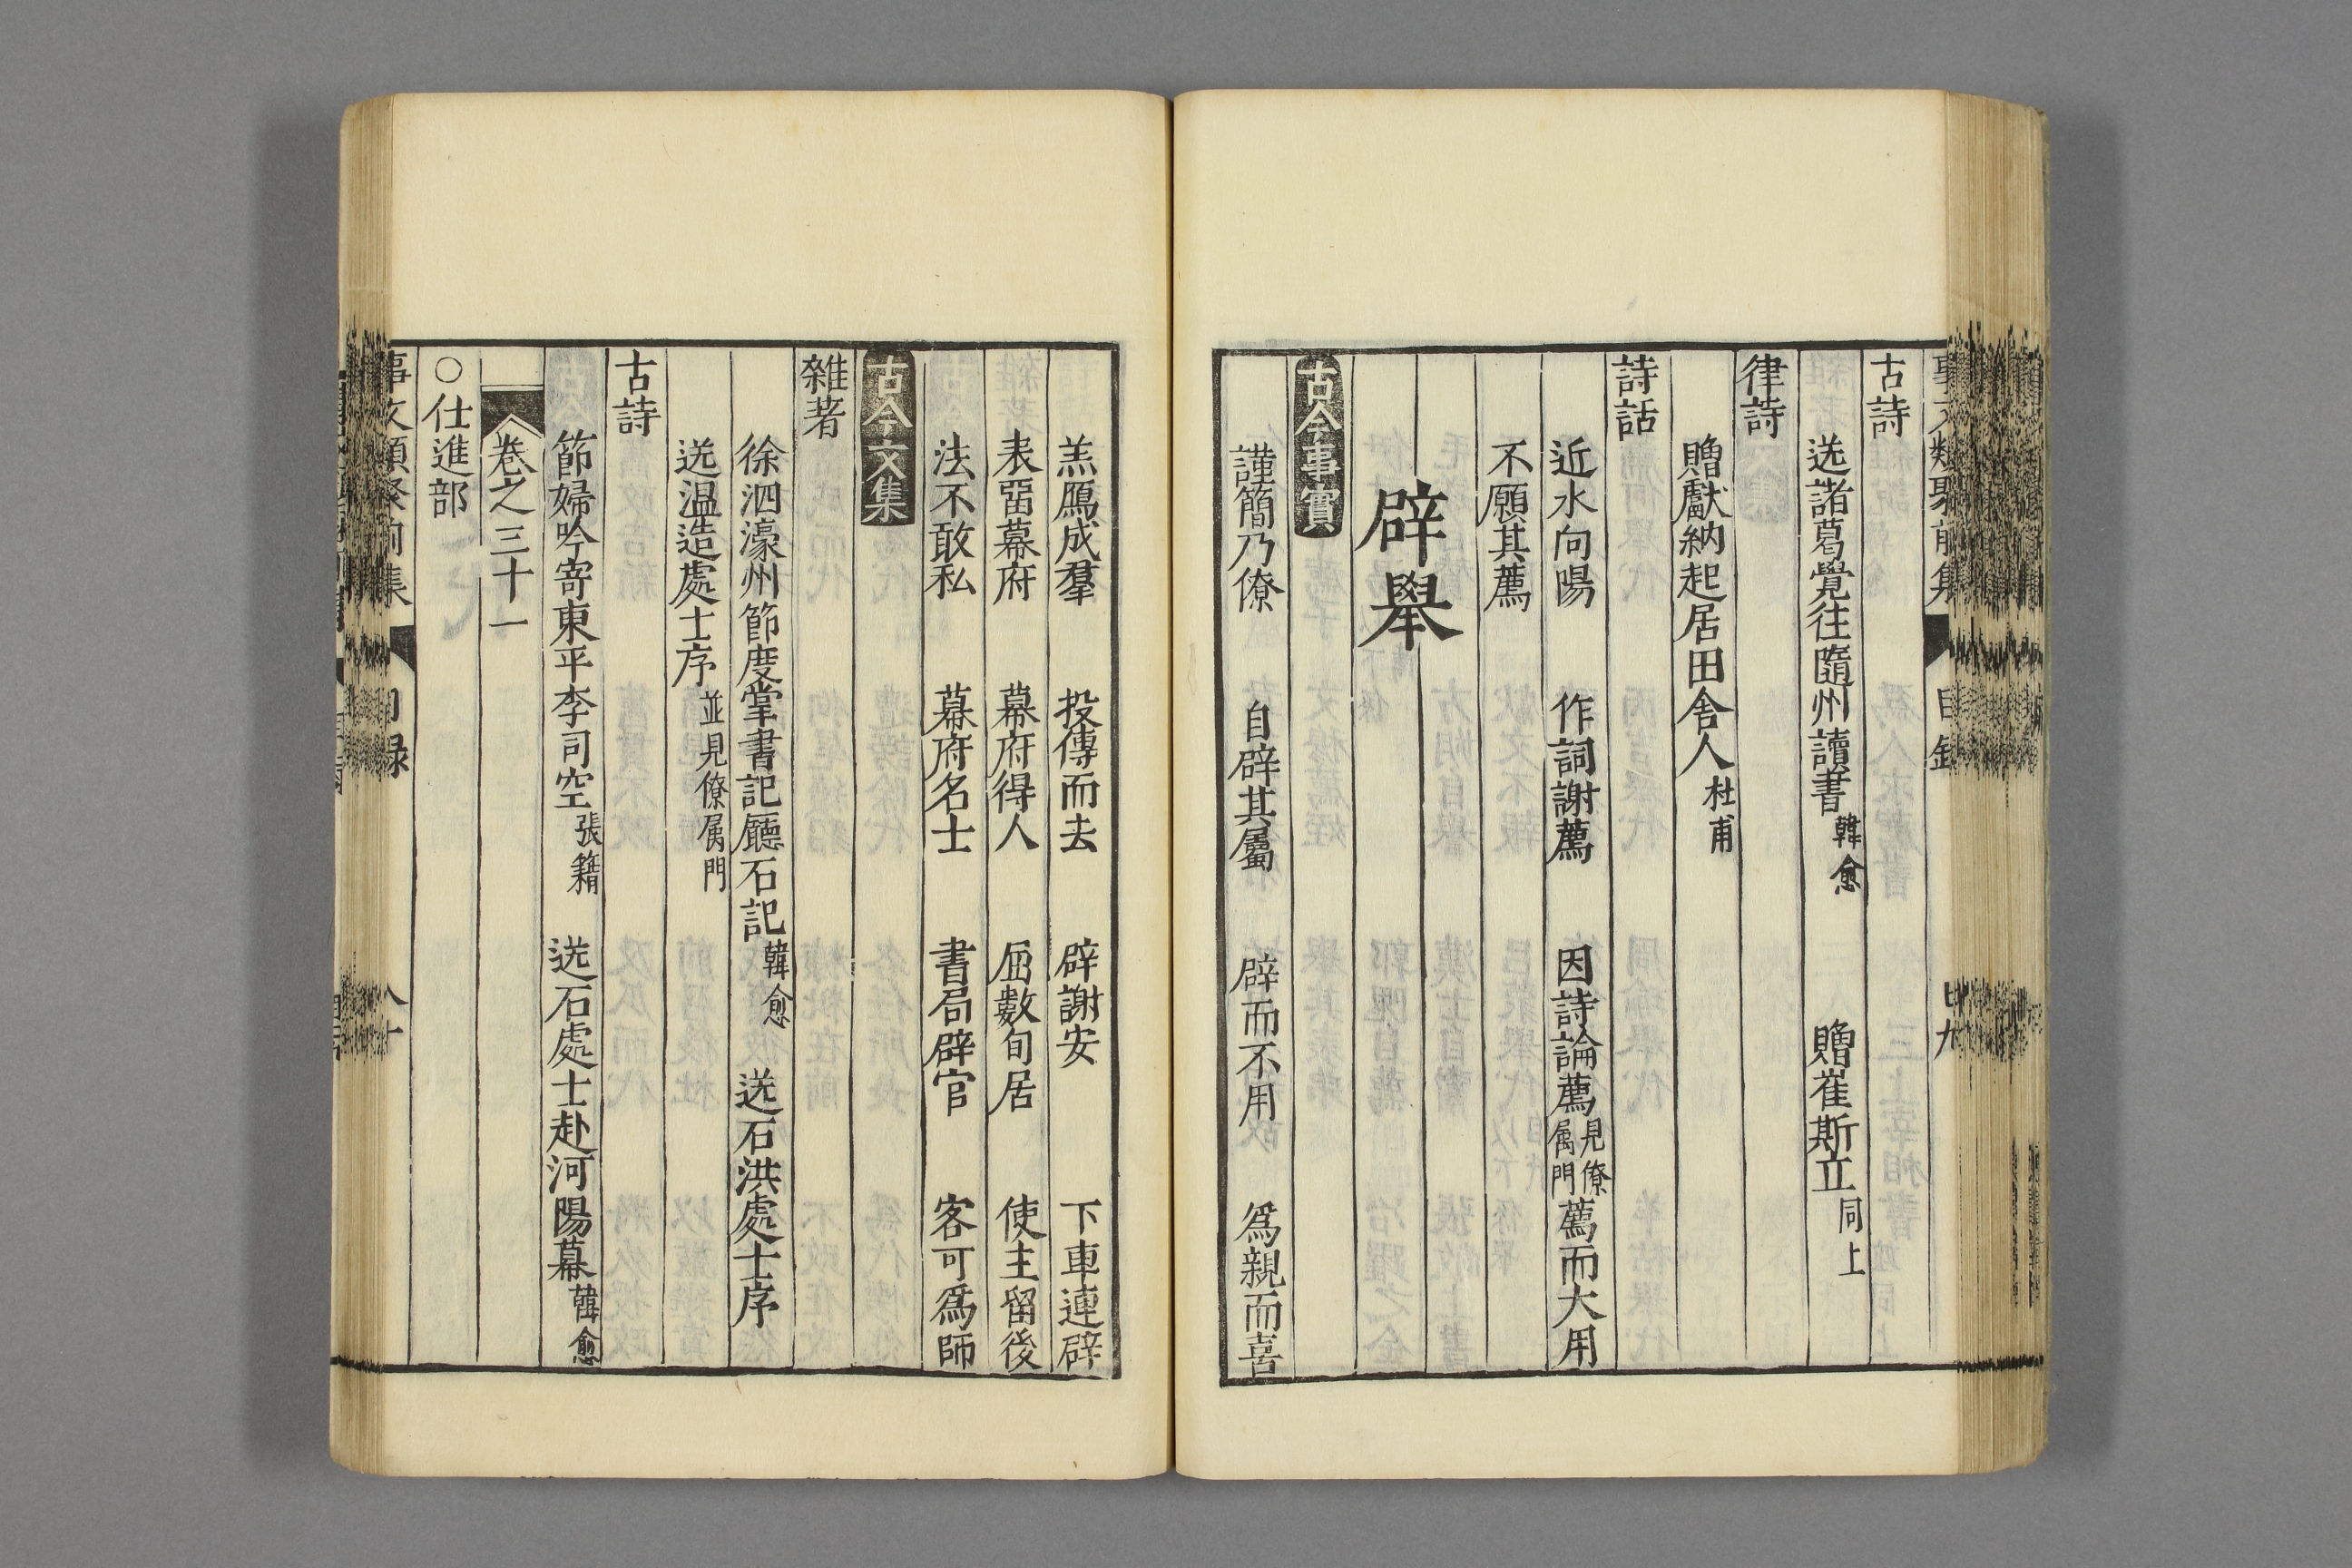 古詩
送諸葛覺往隨州讀書 韓愈 贈崔斯立 同上
律詩
贈獻納起居田舍人 杜甫
詩話
近水向陽 作詞謝薦 因詩論薦 見僚属門 薦而大用
不願其薦
辟舉
古今事實
謹簡乃僚 自辟其屬 辟而不用 為親而喜
羔鴈成羣 投傳而去 辟謝安 下車連辟
表留幕府 幕府得人 屈數旬居 使主留後
法不敢私 幕府名士 書局辟官 客可為師
古今文集
雜著
徐泗濠州節度掌書記廳石記 韓愈 送石洪處士序
送温造處士序 並見僚属門
古詩
節婦吟寄東平李司空 張籍 送石處士赴河陽幕 韓愈
卷之三十一
○仕進部